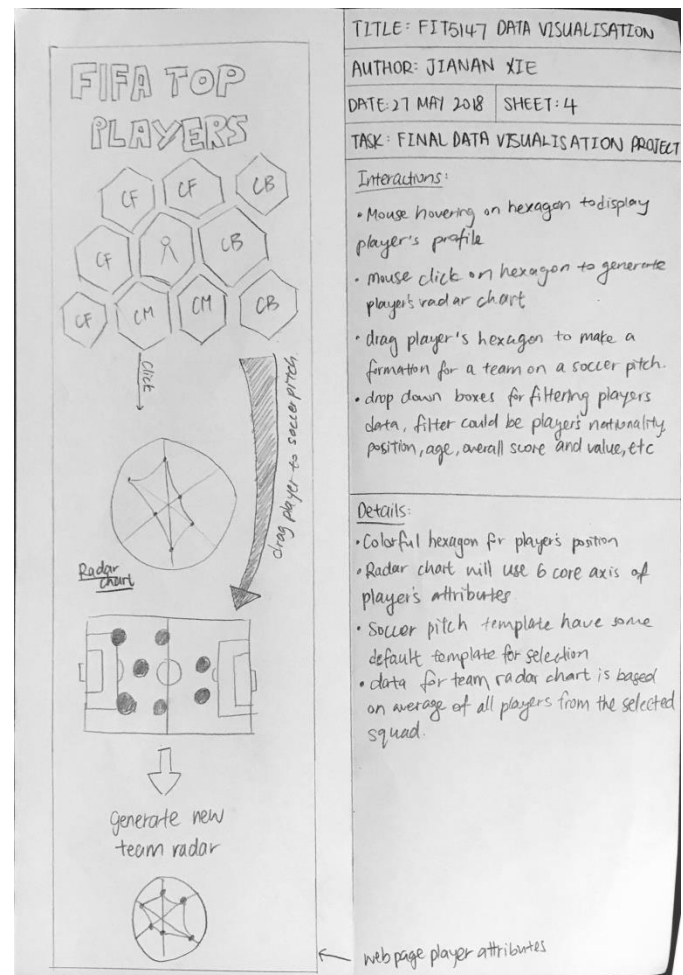 FIFA TOP
PLAYERS
CF CF CB
CF CB
CF CM CM CB
Click
drag player to soccer pitch
Radar
chart
generate new
team radar
TITLE: FIT5147 DATA VISUALISATION
AUTHOR: JIANAN XIE
DATE: 27 MAY 2018 SHEET: 4
TASK: FINAL DATA VISUALISATION PROJECT
Interactions:
• Mouse hovering on hexagon to display
player's profile
• mouse click on hexagon to generate
player's radar chart
• drag player's hexagon to make a
formation for a team on a soccer pitch.
• drop down boxes for filtering players
data, filter could be player's nationality
position, age, overall score and value, etc
Details:
• Colorful hexagon for player's position
• Radar chart will use 6 core axis of
player's attributes
• Soccer pitch template have some
default template for selection
• data for team radar chart is based
on average of all players from the selected
squad.
web page player attributes